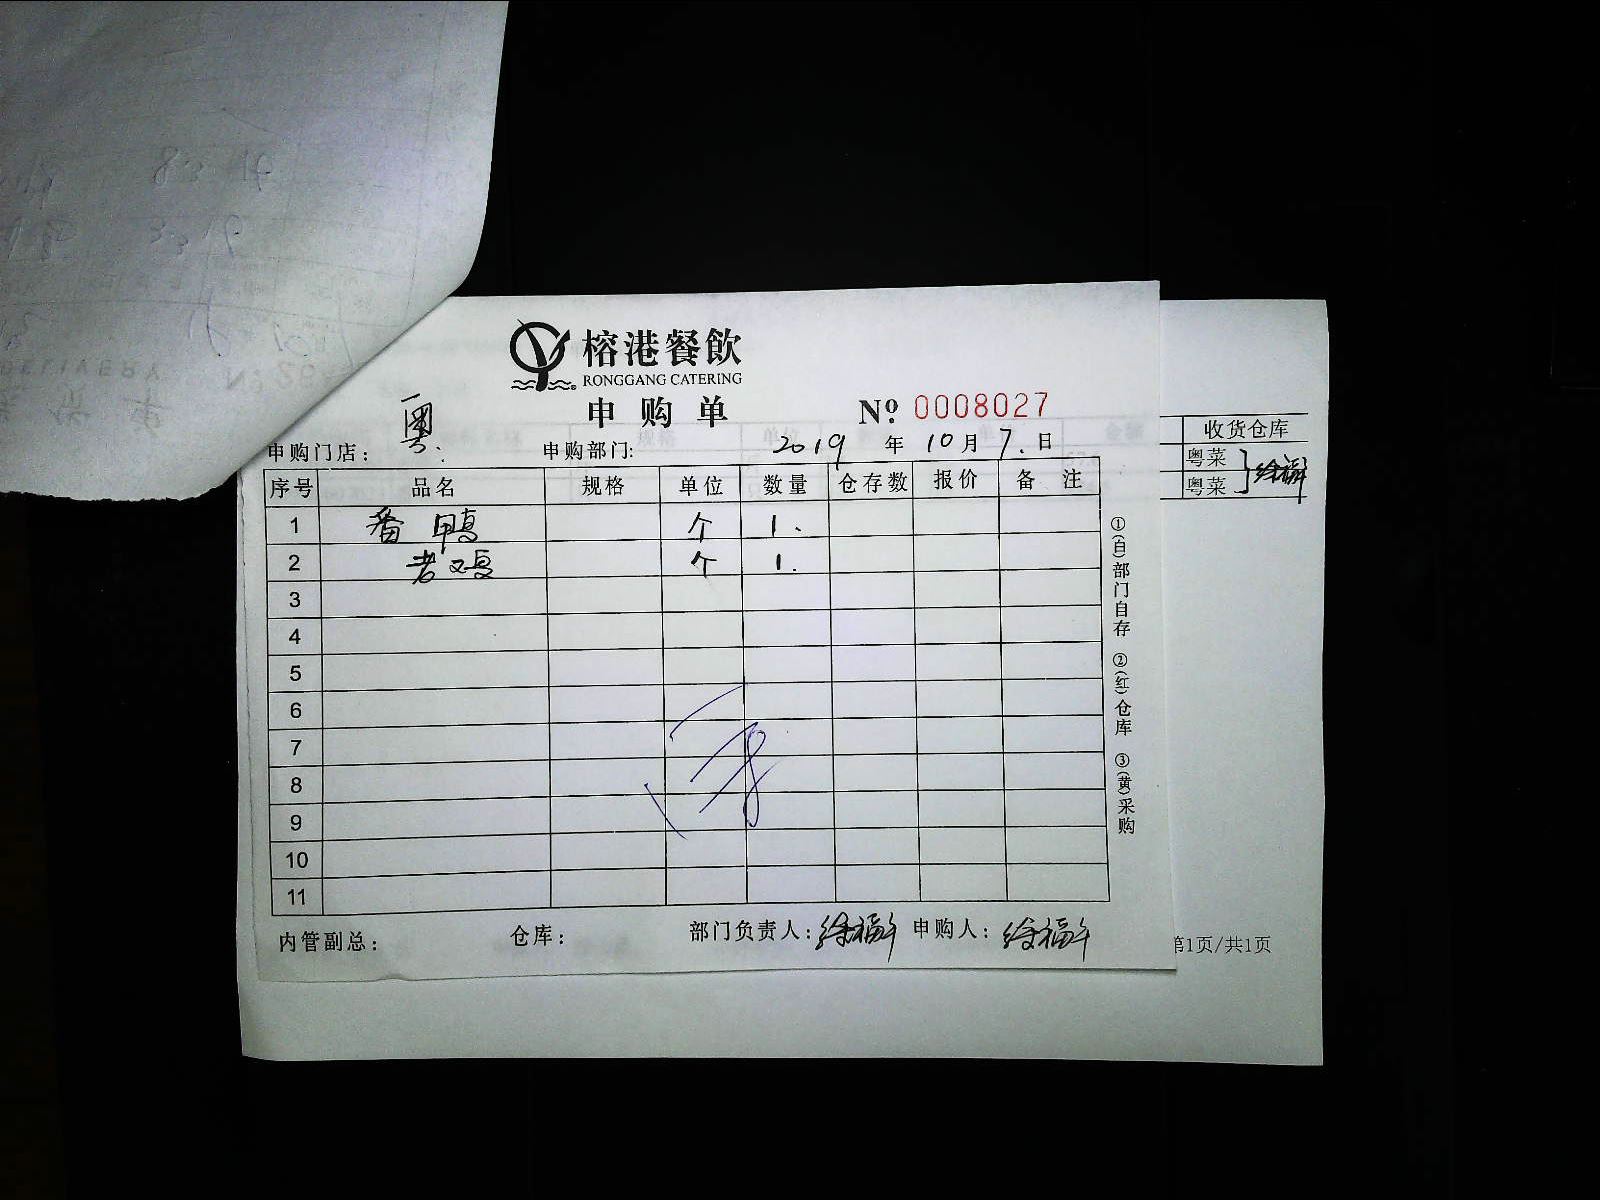 榕港餐飲
RONGGANG CATERING
申购单
№ 0008027
申购门店：粤 申购部门: 2019年10月7日
序号 品名 规格 单位 数量 仓存数 报价 备注
1 番鸭 个 1.
2 老鸡 个 1.
3
4
5
6
7
8
9
10
11
内管副总： 仓库： 部门负责人: 徐福 申购人: 徐福
①(白)部门自存 ②(红)仓库 ③(黄)采购
收货仓库
粤菜
粤菜
徐福
第1页/共1页
DELIVERY